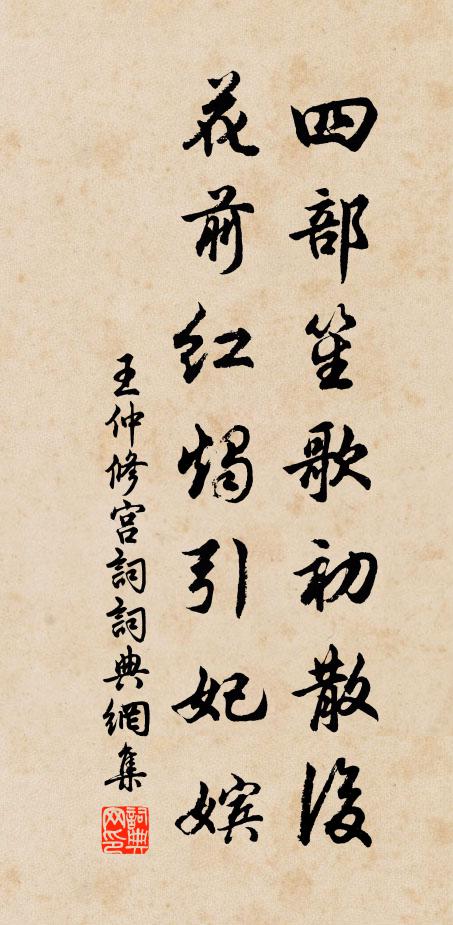 四部笙歌初散後
花前红燭引妃嬪
王仲修宮詞詞典網集
詞典網印